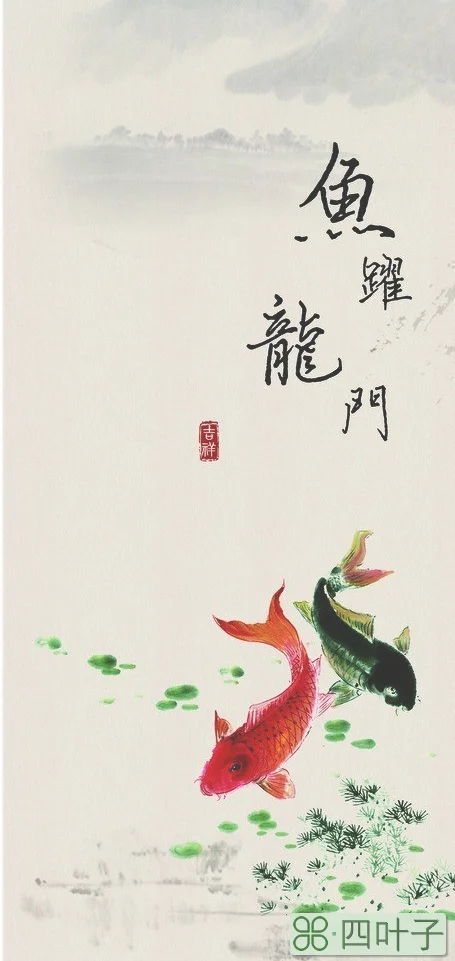 魚躍龍門
吉祥
四叶子